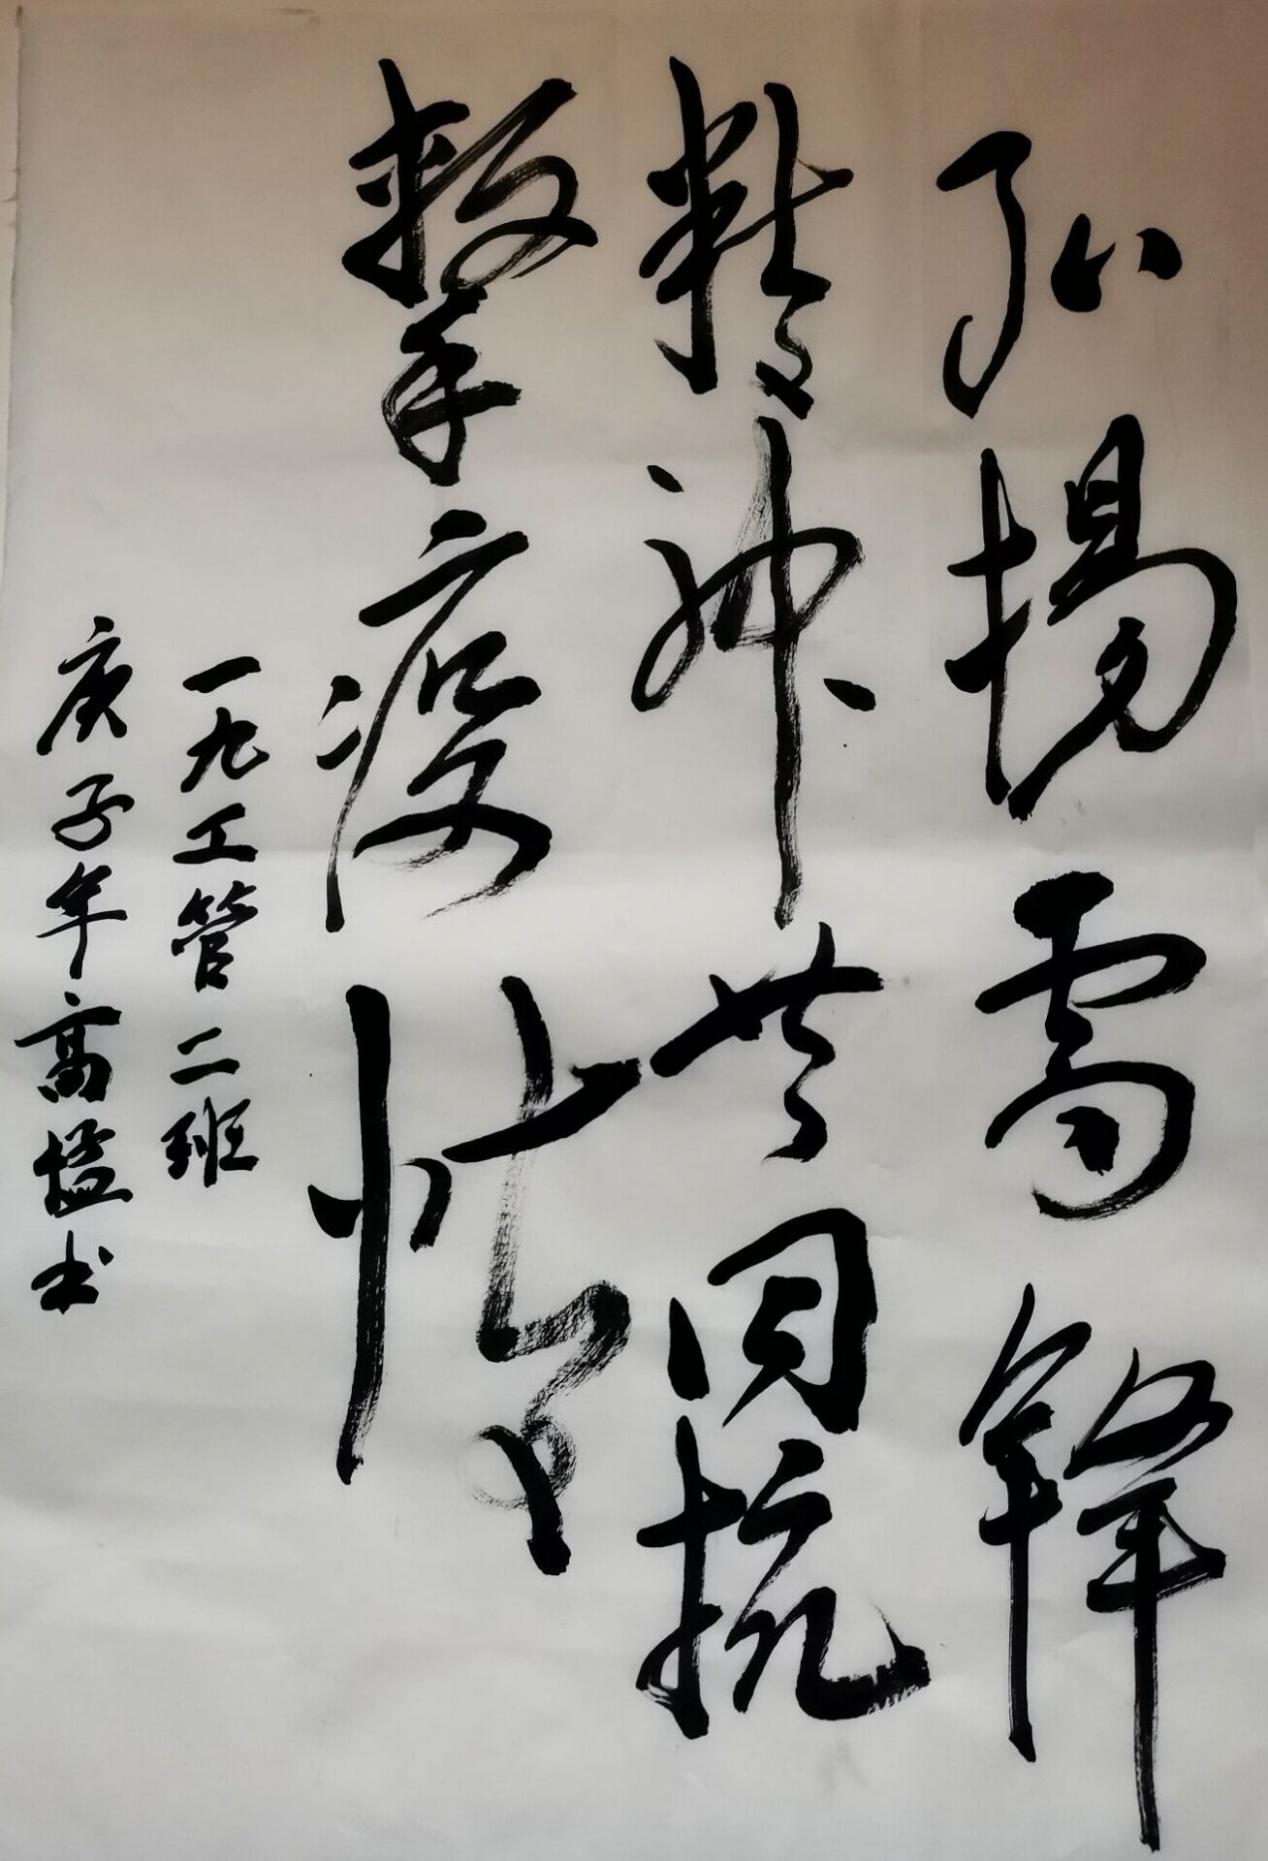 弘揚雷鋒
精神共同抗
擊疫情
一九工管二班
庚子年高孟书